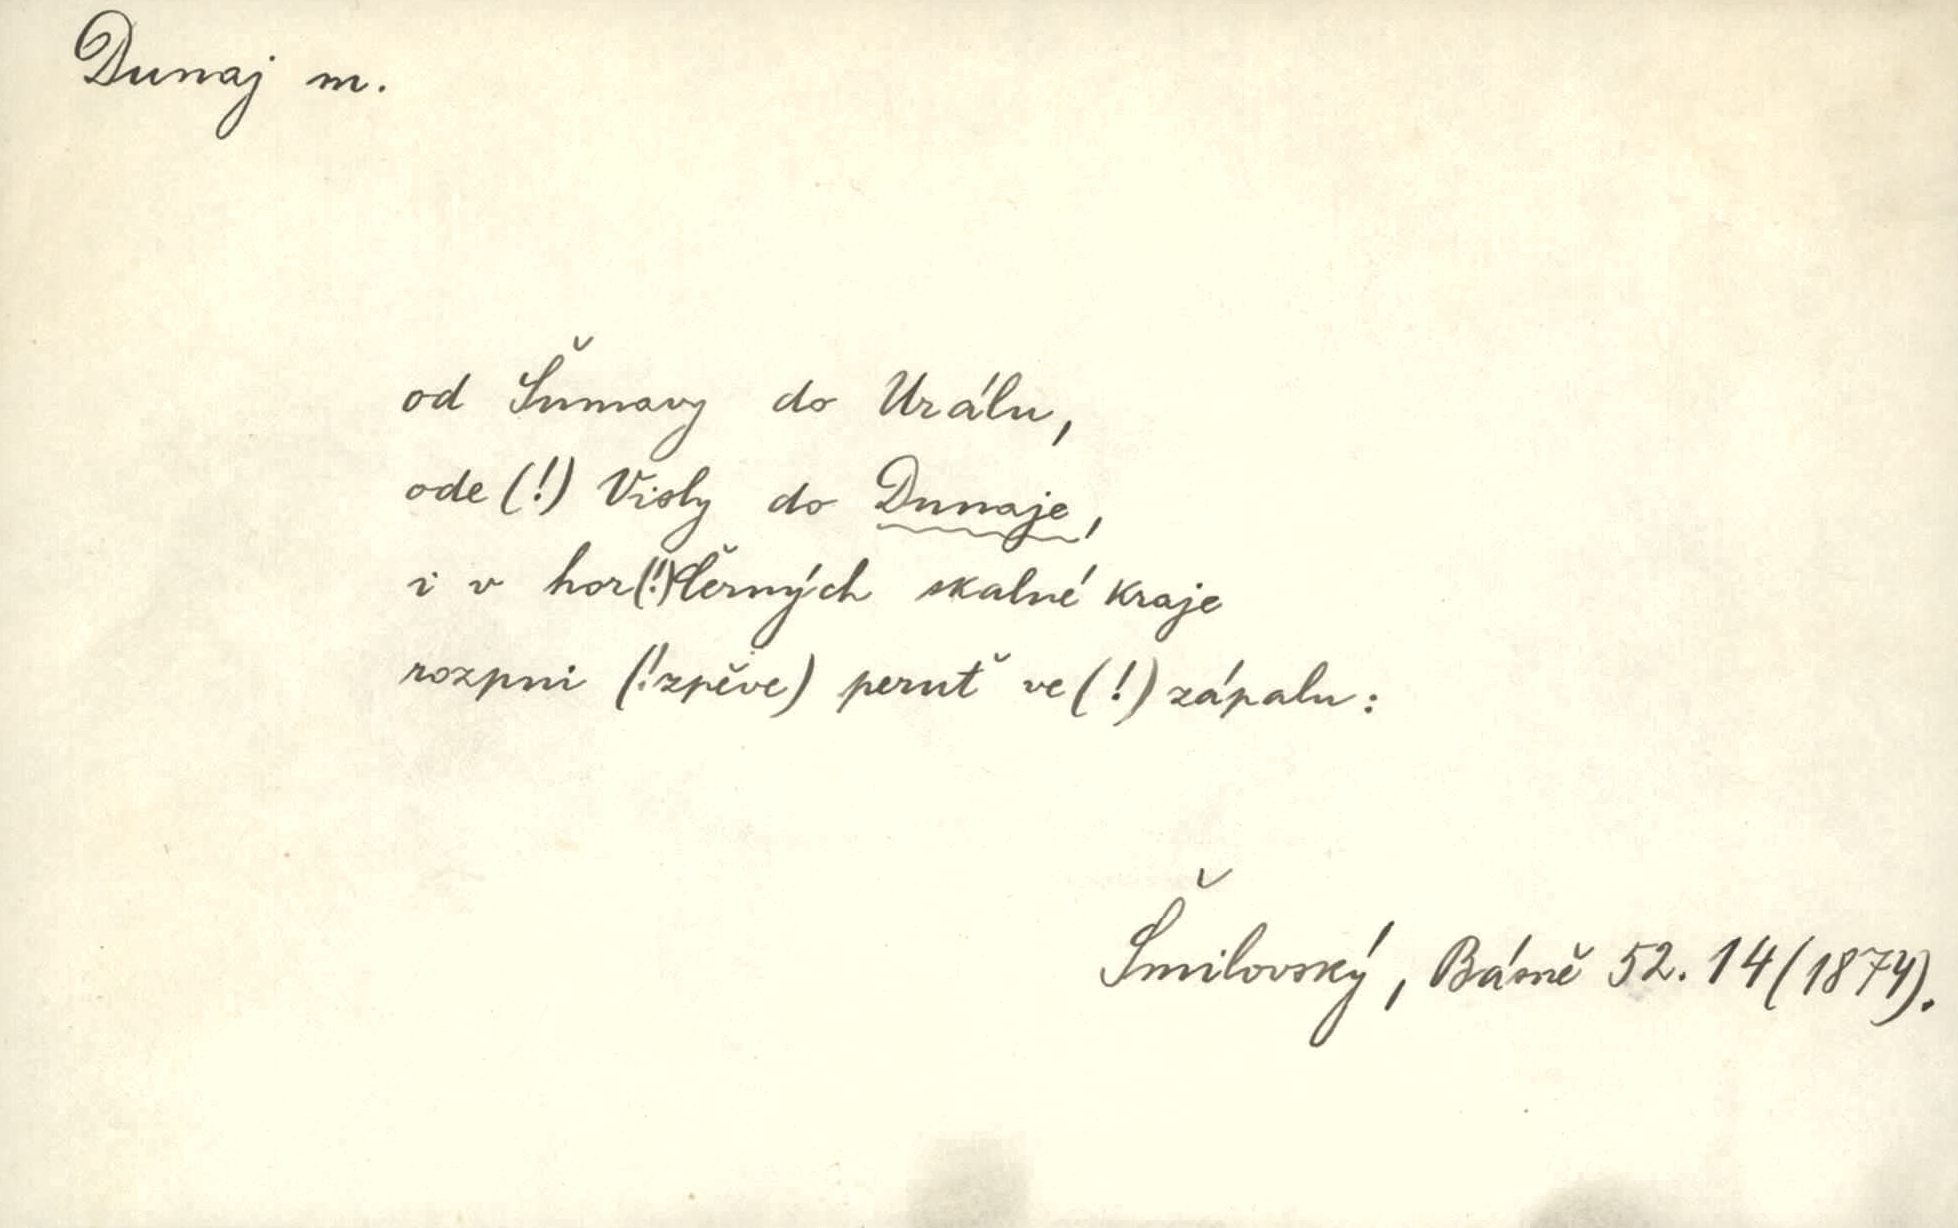 Dunaj m.
od Šumavy do Urálu,
ode (!) Visly do Dunaje,
i v hor(!) Černých skalné kraje
rozpni (! zpěve) peruť ve (!) zápalu:
Šmilovský, Básně 52. 14 (1874).